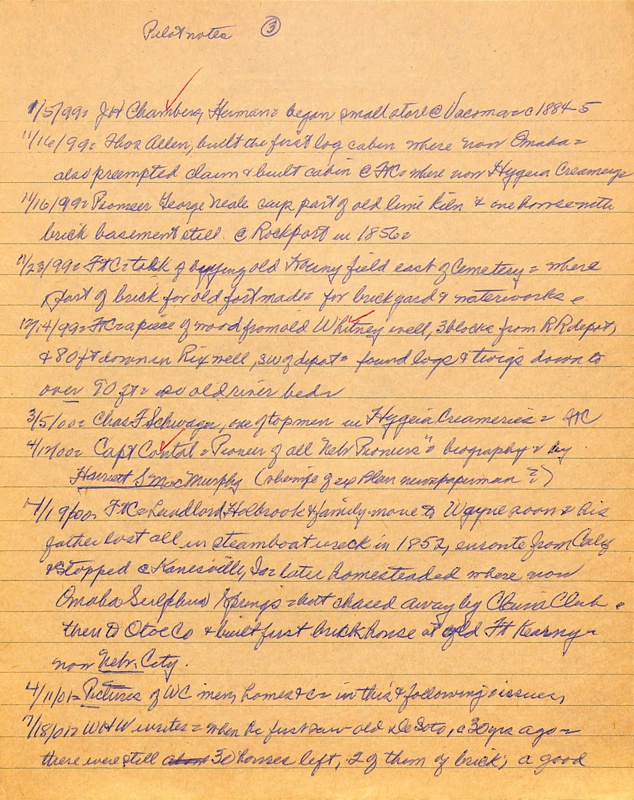 Pilot notes ③
1/5/99= JH Chambers, Herman= began small store @ Vacoma= c 1884-5
11/16/99= Thos Allen, built the first log cabin where now Omaha=
also preempted claim & built cabin @ FtC= where now Hygeia Creamery
11/16/99= Pioneer George Neale says part of old lime kiln & one house with
brick basement still @ Rockport in 1856=
11/23/99= FtC= talk of buying old Young field east of Cemetery= where
part of brick for old fort made= for brickyard & waterworks
12/14/99= FtC= a piece of wood from old Whitney well, 3 blocks from RR depot,
& 80 ft down in Rix well, 3W of depot= found logs & twigs down to
over 90 ft= so old river bed=
3/5/00= Chas F Schwager, one of top men in Hygeia Creameries= FtC
4/12/00= Capt Contal= "Pioneer of all Nebr Pioneers"= biography= by
Harriett S MacMurphy (she wife of ex Blair newspaperman?)
4/19/00= FtC= Landlord Holbrook & family move to Wayne soon= his
father lost all in steamboat wreck in 1852, enroute from Calif
& stopped @ Kanesville, Ia= later homesteaded where now
Omaha Sulphur Springs= but chased away by Claim Club=
then to Otoe Co & built first brick house at old Ft Kearny=
now Nebr. City.
4/11/01= Pictures of WC men, homes &c= in this & following issues,
7/18/01= WHW writes= when he first saw old DeSoto, c 30 yrs ago=
there were still about 30 houses left, 2 of them of brick; a good